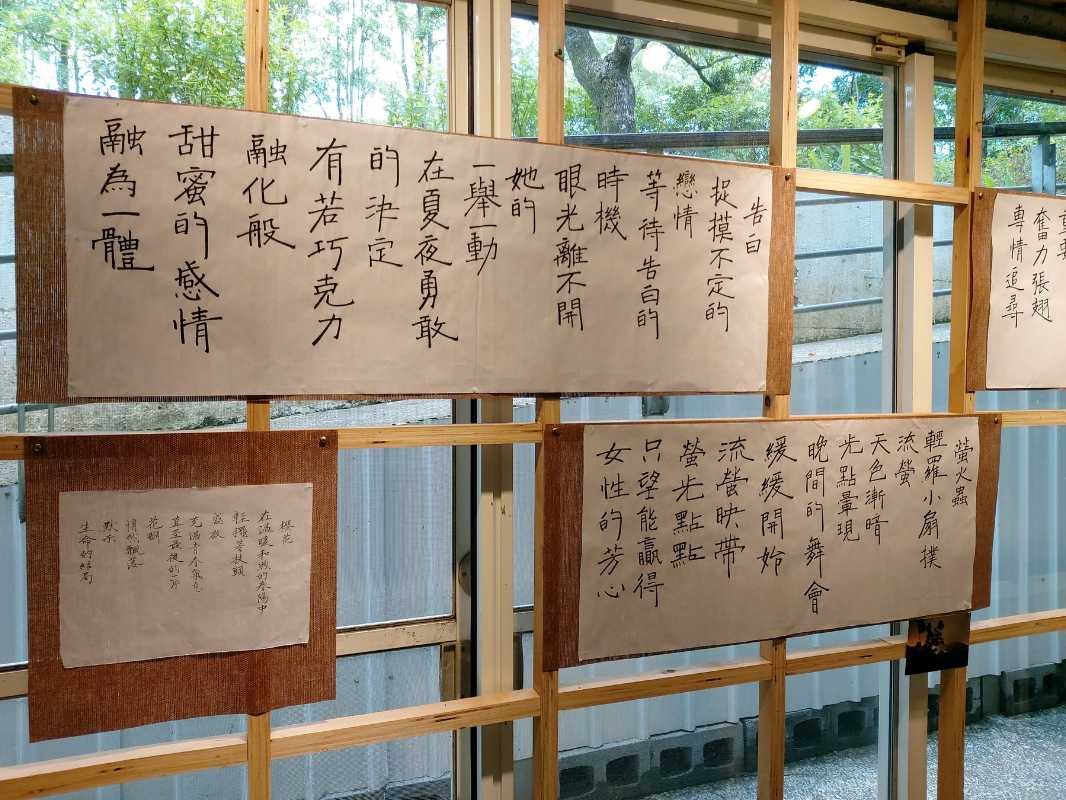 重要
奮力張翅
專情追尋
告白
捉摸不定的
戀情
等待告白的
時機
眼光離不開
她的
一舉一動
在夏夜勇敢
的決定
有若巧克力
融化般
甜蜜的感情
融為一體
螢火蟲
輕羅小扇撲
流螢
天色漸暗
光點暈現
晚間的舞會
緩緩開始
流螢映帶
螢光點點
只望能贏得
女性的芳心
櫻花
在溫暖和煦的春陽中
輕擺著枝頭
盛放
充滿青春氣息
直至最後的一
花瓣
悄然飄落
默示
生命的結局